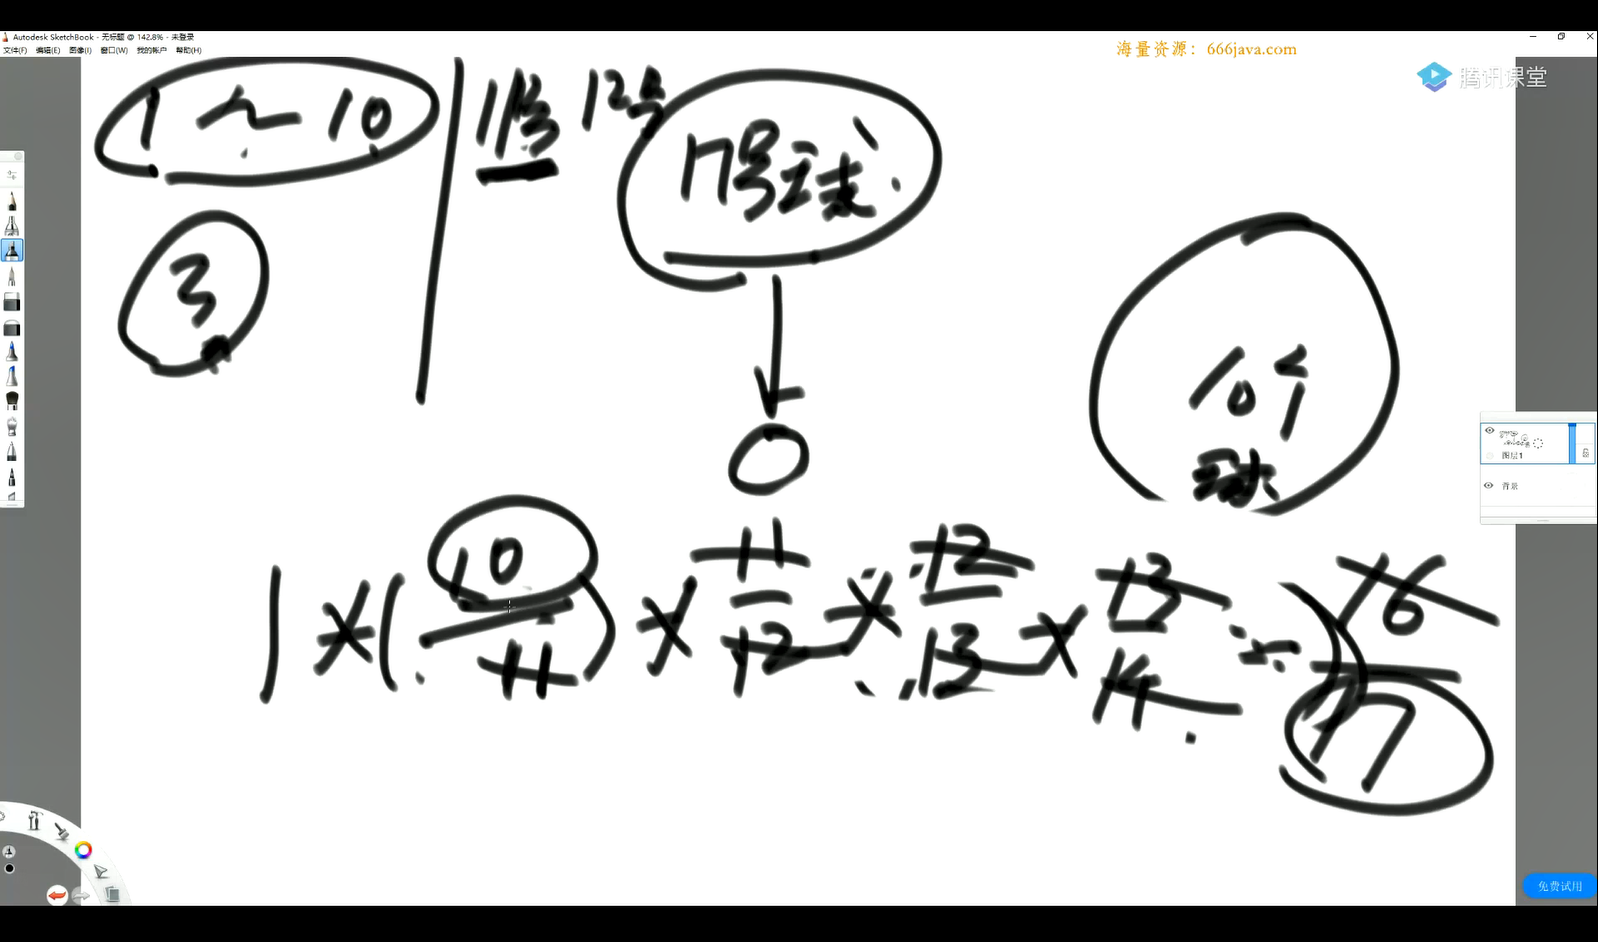 Autodesk SketchBook - 无标题 @ 142.8% - 未登录
文件(F) 编辑(E) 图像(I) 窗口(W) 我的帐户 帮助(H)
海量资源：666java.com
腾讯课堂
1 ~ 10
11号 12号
17号球
3
10个
球
1 × ( 10/11 ) × 11/12 × 12/13 × 13/14 ... 16/17
图层1
背景
免费试用